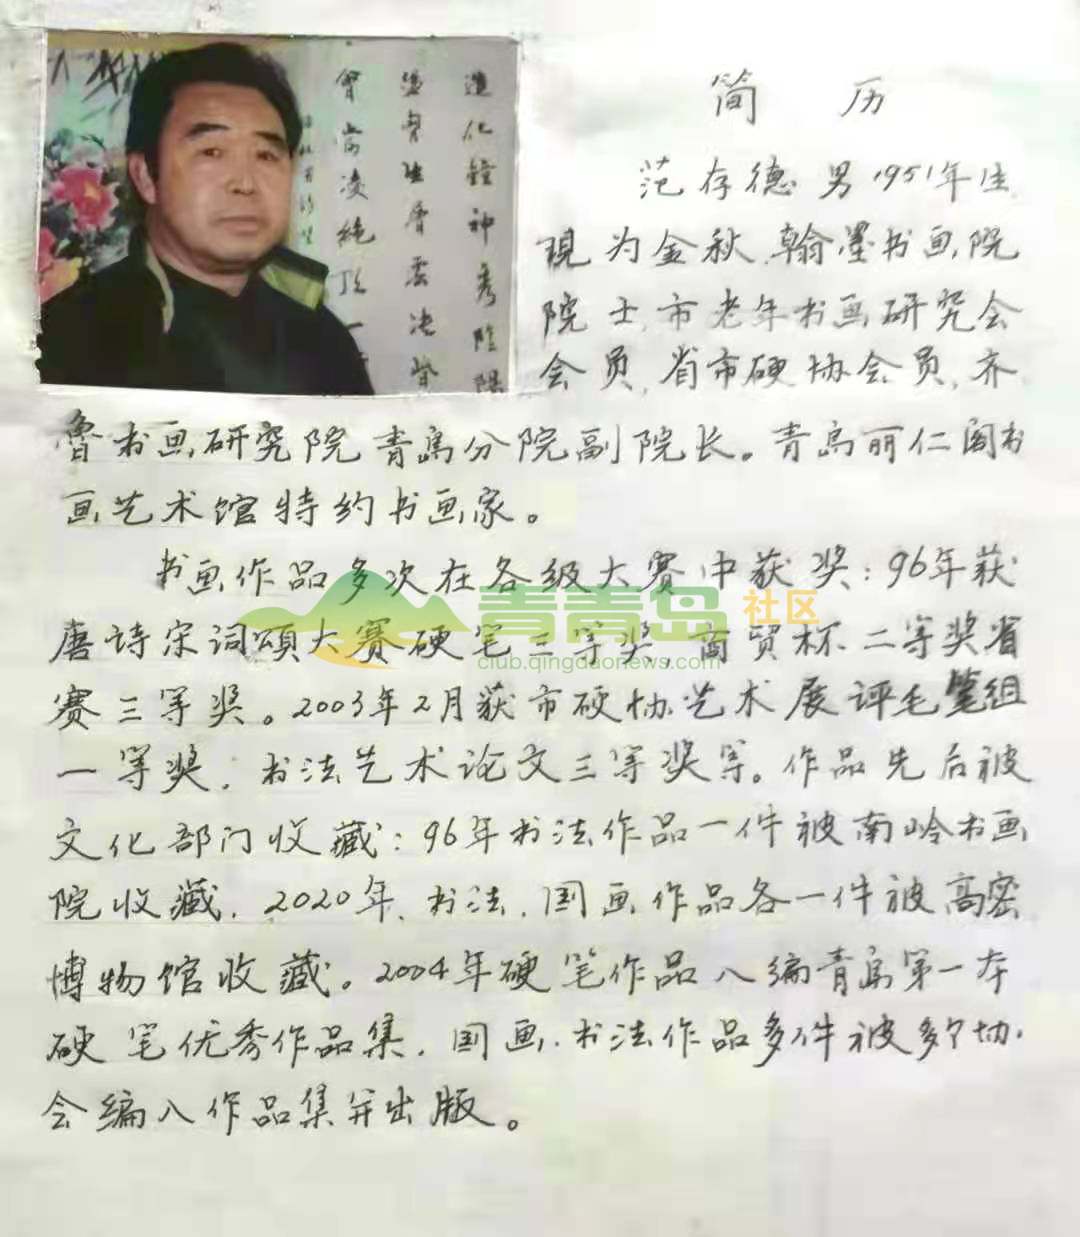 造化钟神秀阴阳
盪胷生層雲决眥
會當凌絶頂一
简 历
范存德 男 1951年生，
现为金秋翰墨书画院
院士，市老年书画研究会
会员，省市硬协会员，齐
鲁书画研究院青岛分院副院长。青岛丽仁阁书
画艺术馆特约书画家。
书画作品多次在各级大赛中获奖：96年获
唐诗宋词颂大赛硬笔三等奖，商贸杯二等奖省
赛三等奖。2003年2月获市硬协艺术展评毛笔组
一等奖，书法艺术论文三等奖等。作品先后被
文化部门收藏：96年书法作品一件被南岭书画
院收藏，2020年，书法，国画作品各一件被高密
博物馆收藏。2004年硬笔作品入编青岛第一本
硬笔优秀作品集，国画、书法作品多件被多个协
会编入作品集并出版。
青青岛社区
club.qingdaonews.com